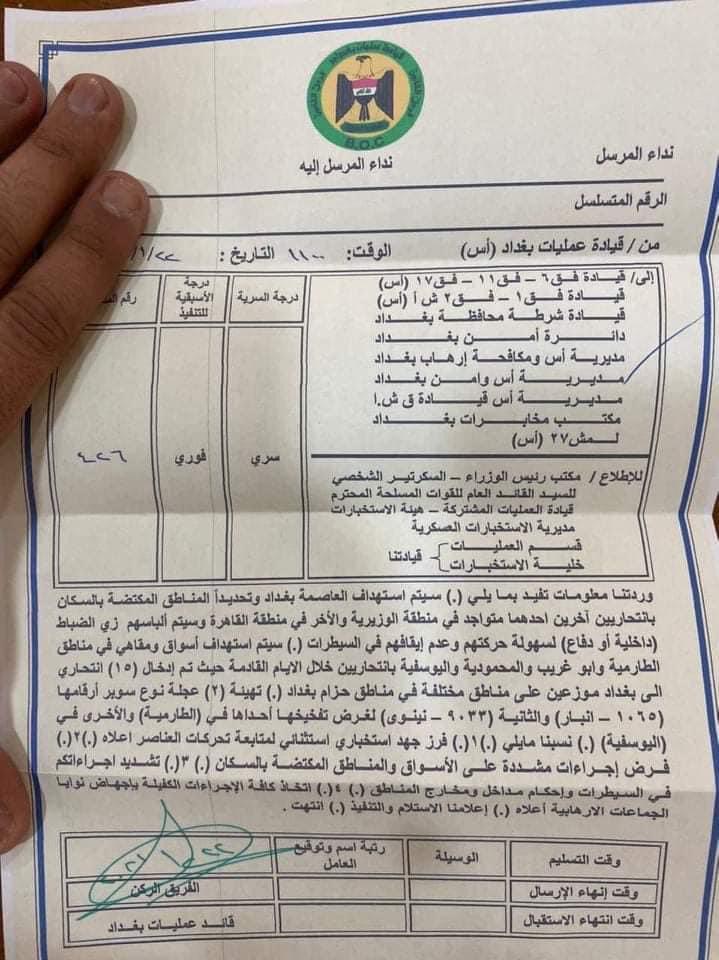 B.O.C
نداء المرسل
نداء المرسل إليه
الرقم المتسلسل
من / قيادة عمليات بغداد (أس) الوقت: ١١٠٠ التاريخ: ١/٢٢/
إلى/ قيادة فق٦ – فق١١ – فق١٧ (أس)
قيادة فق١ – فق٢ ش أ (أس)
قيادة شرطة محافظة بغداد
دائرة أمن بغداد
مديرية أس ومكافحة إرهاب بغداد
مديرية أس وامن بغداد
مديرية أس قيادة ق ش.ا
مكتب مخابرات بغداد
لمش٢٧ (أس)
درجة السرية
درجة الأسبقية للتنفيذ
رقم
سري
فوري
٤٢٦
للإطلاع / مكتب رئيس الوزراء – السكرتير الشخصي
للسيد القائد العام للقوات المسلحة المحترم
قيادة العمليات المشتركة – هيئة الاستخبارات
مديرية الاستخبارات العسكرية
قسم العمليات
خلية الاستخبارات
قيادتنا
وردتنا معلومات تفيد بما يلي (.) سيتم استهداف العاصمة بغداد وتحديداً المناطق المكتضة بالسكان
بانتحاريين آخرين احدهما متواجد في منطقة الوزيرية والأخر في منطقة القاهرة وسيتم ألباسهم زي الضباط
(داخلية أو دفاع) لسهولة حركتهم وعدم إيقافهم في السيطرات (.) سيتم استهداف أسواق ومقاهي في مناطق
الطارمية وابو غريب والمحمودية واليوسفية بانتحاريين خلال الايام القادمة حيث تم إدخال (١٥) انتحاري
الى بغداد موزعين على مناطق مختلفة في مناطق حزام بغداد (.) تهيئة (٢) عجلة نوع سوبر أرقامها
(١٠٦٥ – انبار) والثانية (٩٠٣٣ – نينوى) لغرض تفخيخها أحداها في (الطارمية) والأخرى في
(اليوسفية) (.) نسبنا مايلي (.)١(.) فرز جهد استخباري استثنائي لمتابعة تحركات العناصر اعلاه (.)٢(.)
فرض إجراءات مشددة على الأسواق والمناطق المكتضة بالسكان (.)٣(.) تشديد اجراءاتكم
في السيطرات وإحكام مداخل ومخارج المناطق (.)٤(.) اتخاذ كافة الإجراءات الكفيلة بإجهاض نوايا
الجماعات الارهابية أعلاه (.) إعلامنا الاستلام والتنفيذ (.) انتهت .
وقت التسليم
الوسيلة
رتبة اسم وتوقيع العامل
وقت إنهاء الإرسال
الفريق الركن
وقت انتهاء الاستقبال
قائد عمليات بغداد